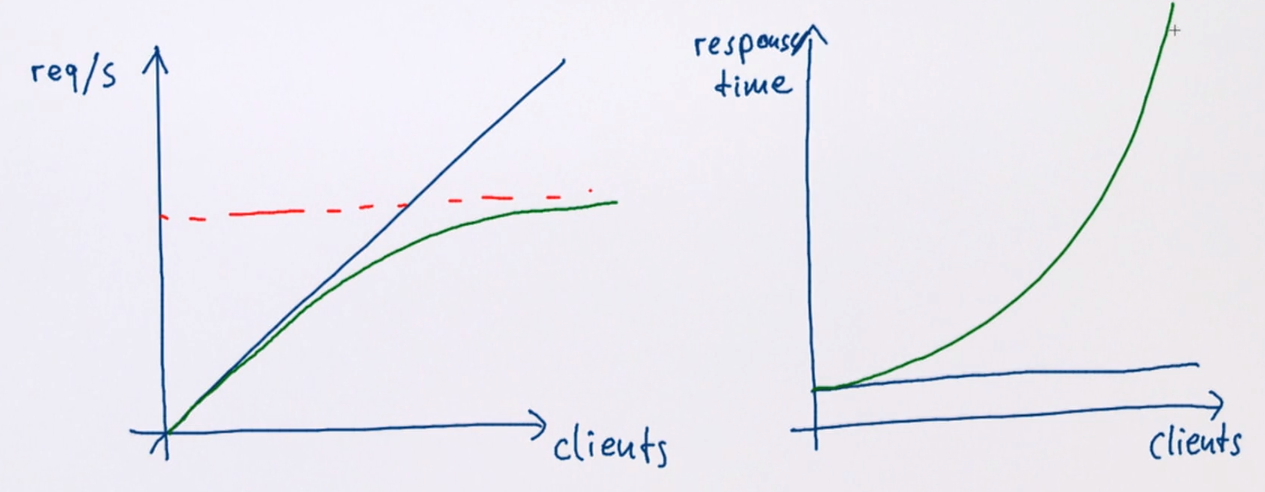 req/s
clients
response
time
clients